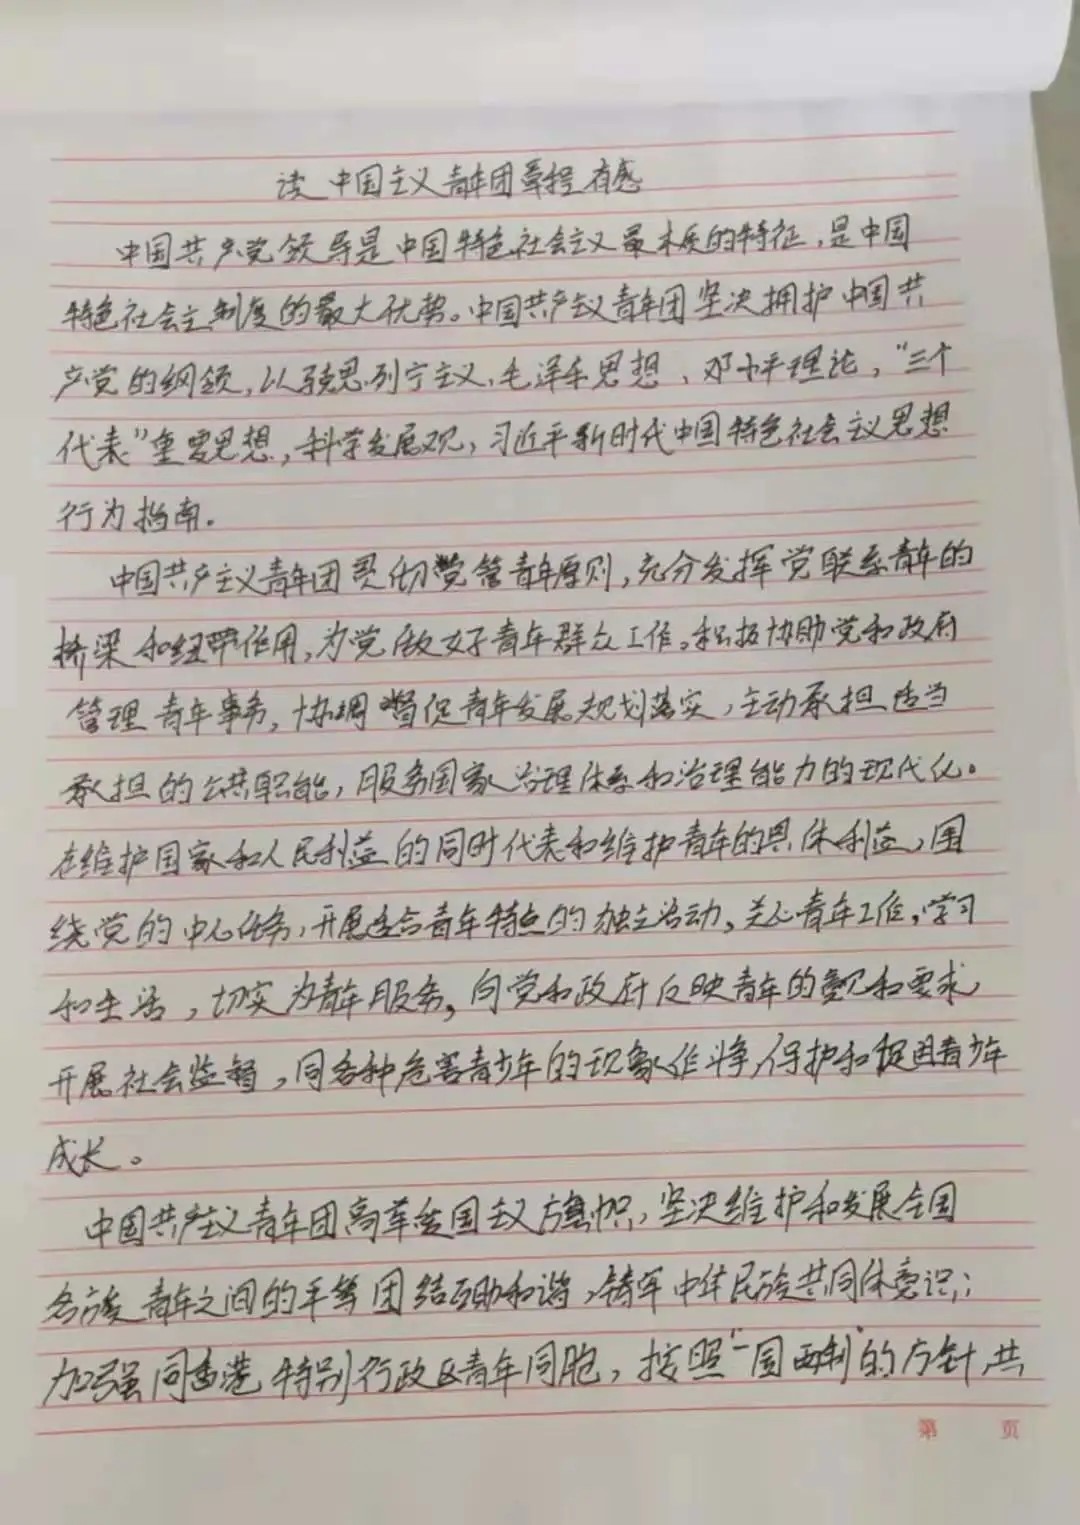 读中国主义青年团章程有感
中国共产党领导是中国特色社会主义最本质的特征,是中国
特色社会主制度的最大优势。中国共产主义青年团坚决拥护中国共
产党的纲领,以马克思列宁主义、毛泽东思想、邓小平理论,“三个
代表”重要思想,科学发展观,习近平新时代中国特色社会主义思想
行为指南.
中国共产主义青年团贯彻党管青年原则,充分发挥党联系青年的
桥梁和纽带作用,为党做好青年群众工作。积极协助党和政府
管理青年事务,协调督促青年发展规划落实,主动承担适当
承担的公共职能,服务国家治理体系和治理能力的现代化。
在维护国家和人民利益的同时代表和维护青年的具体利益,围
绕党的中心任务,开展适合青年特点的独立活动,关心青年工作,学习
和生活,切实为青年服务,向党和政府反映青年的意见和要求,
开展社会监督,同各种危害青少年的现象作斗争,保护和促进青少年
成长。
中国共产主义青年团高举爱国主义旗帜,坚决维护和发展全国
各族青年之间的平等团结互助和谐,铸牢中华民族共同体意识;
加强同香港特别行政区青年同胞,按照“一国两制”的方针,共
第 页